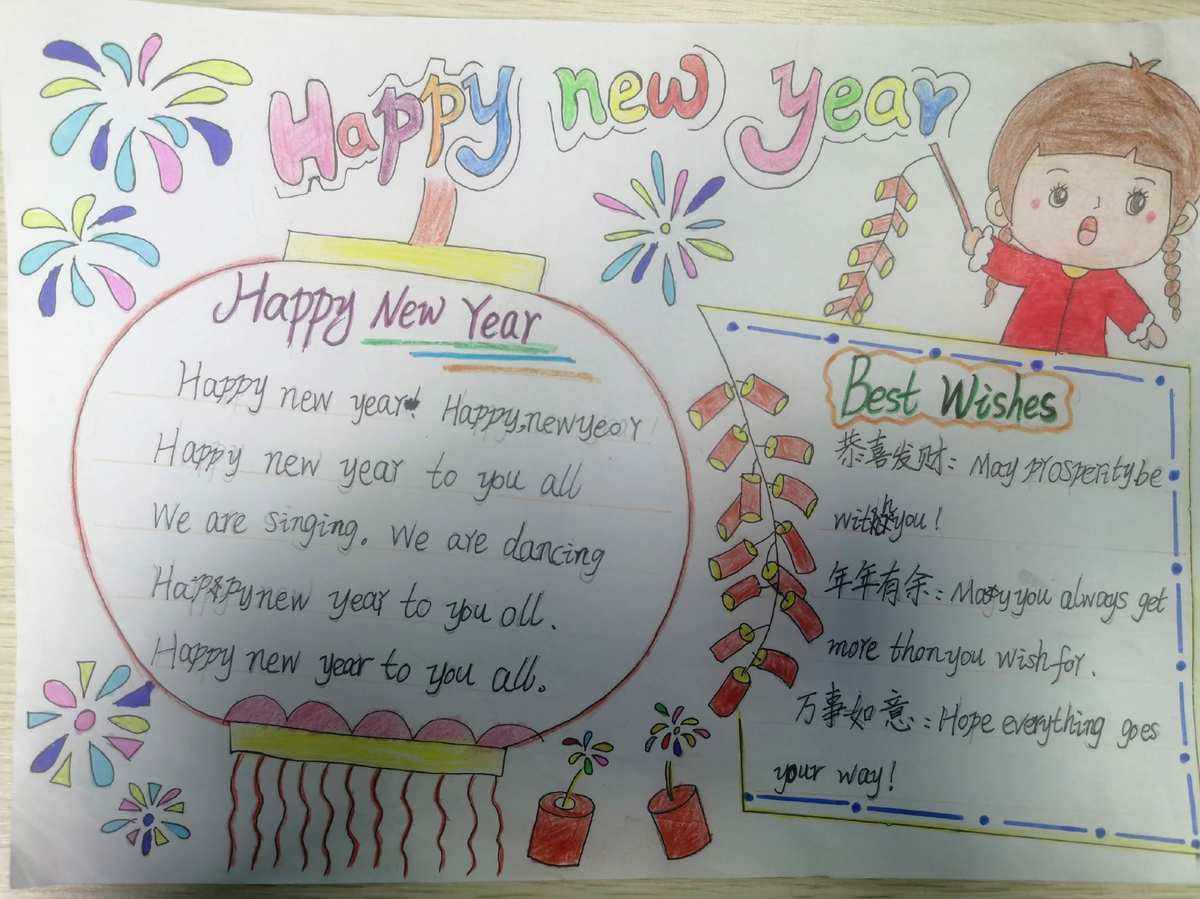 Happy new year
Happy New Year
Happy new year! Happy new year!
Happy new year to you all
We are singing. We are dancing
Happy new year to you all.
Happy new year to you all.
Best Wishes
恭喜发财: May prosperity be
with you!
年年有余: May you always get
more than you wish for.
万事如意: Hope everything goes
your way!